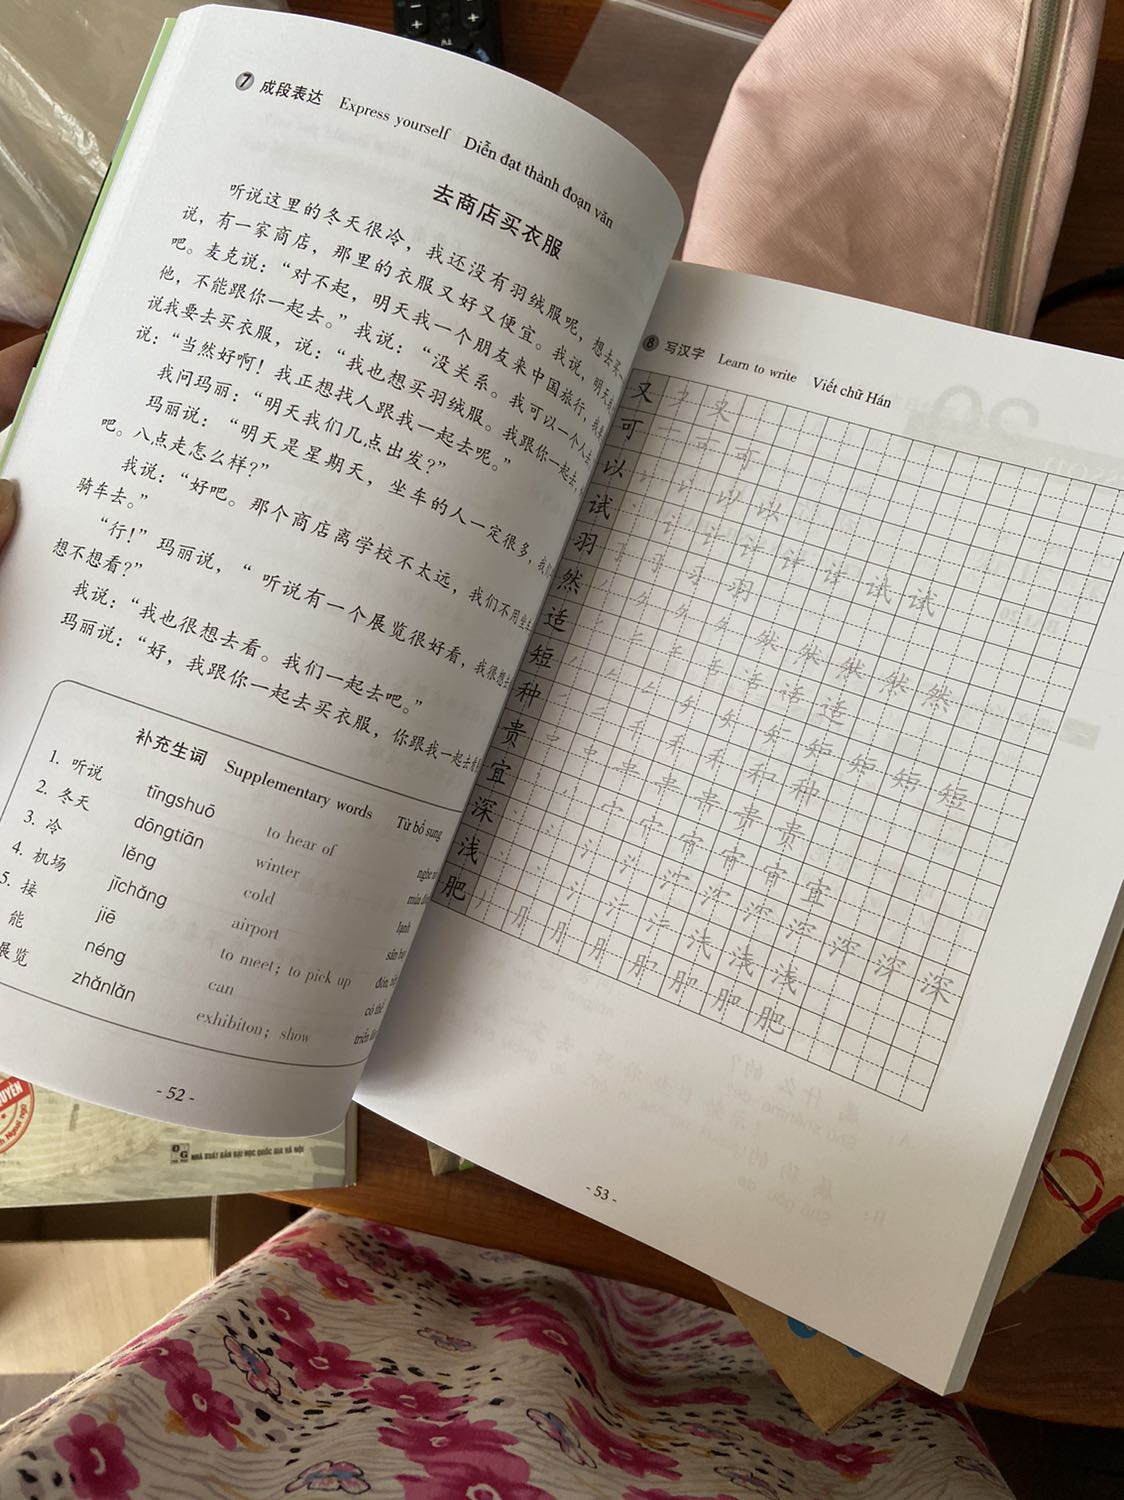 7 成段表达 Express yourself Diễn đạt thành đoạn văn
去商店买衣服
听说这里的冬天很冷，我还没有羽绒服呢，想去买
说，有一家商店，那里的衣服又好又便宜。我说，明天
吧。麦克说：“对不起，明天我一个朋友来中国旅行，我
他，不能跟你一起去。”我说：“没关系。我可以一个人去
说我要去买衣服，说：“我也想买羽绒服。我跟你一起去，
说：“当然好啊！我正想找人跟我一起去呢。”
我问玛丽：“明天我们几点出发？”
玛丽说：“明天是星期天，坐车的人一定很多，我们
吧。八点走怎么样？”
我说：“好吧。那个商店离学校不太远，我们不用坐
骑车去。”
“行！”玛丽说，“听说有一个展览很好看，我很想
想不想看？”
我说：“我也很想去看。我们一起去吧。”
玛丽说：“好，我跟你一起去买衣服，你跟我一起去
补充生词 Supplementary words Từ bổ sung
1. 听说 tīngshuō to hear of
2. 冬天 dōngtiān winter
3. 冷 lěng cold lạnh
4. 机场 jīchǎng airport
5. 接 jiē to meet; to pick up
能 néng can có thể
展览 zhǎnlǎn exhibiton; show
- 52 -
NHÀ XUẤT BẢN ĐẠI HỌC QUỐC GIA HÀ NỘI
8 写汉字 Learn to write Viết chữ Hán
又
可
以
试
羽
然
适
短
种
贵
宜
深
浅
肥
- 53 -